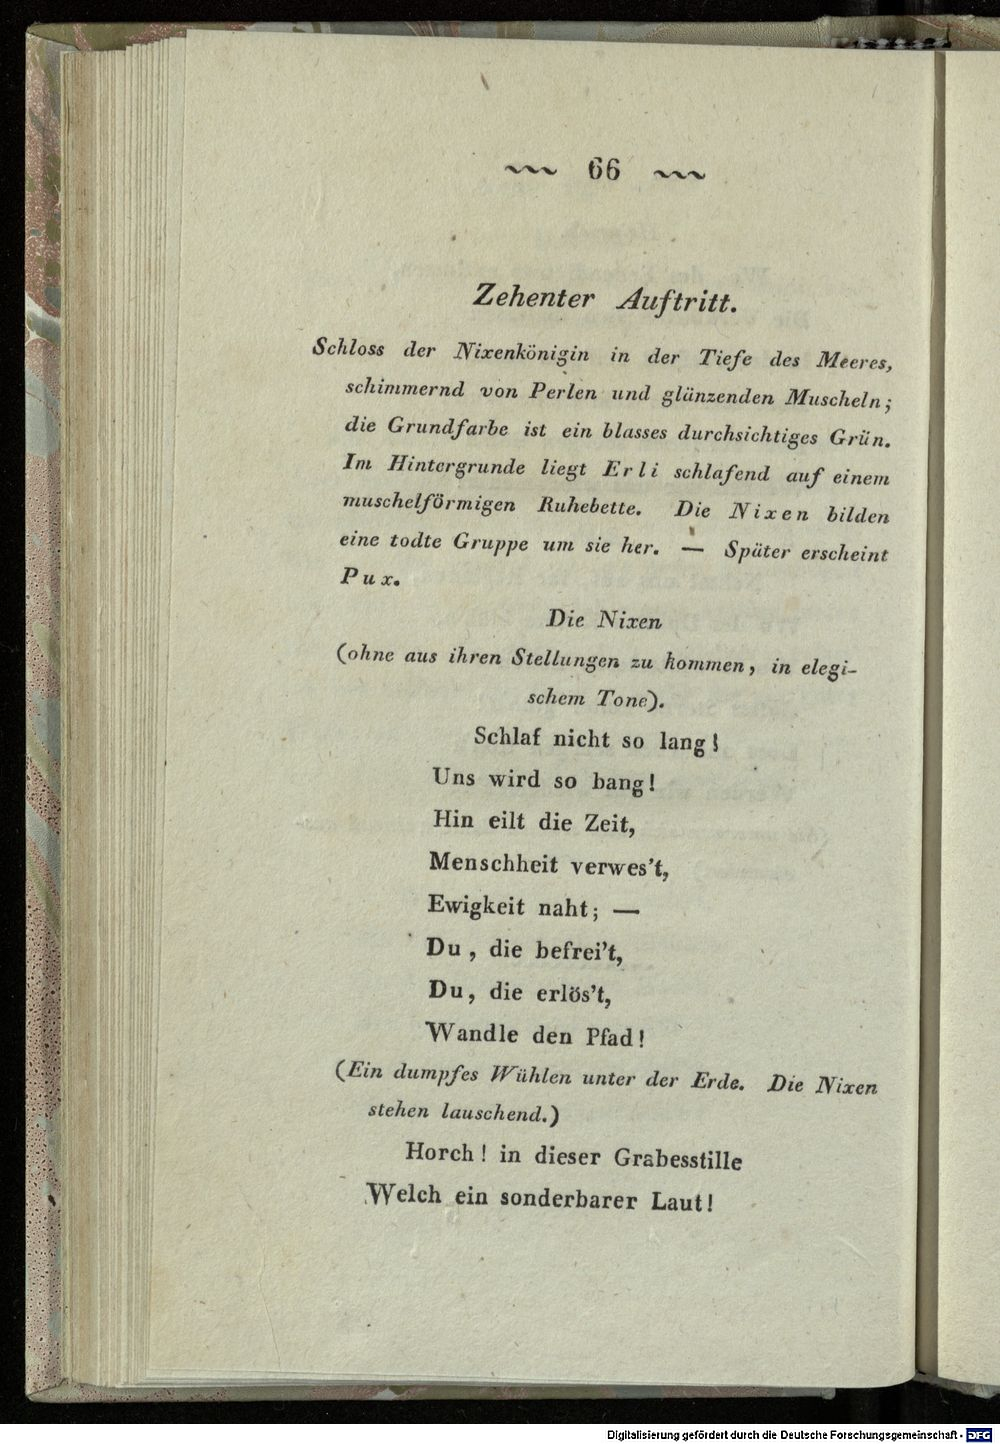 ~~ 66 ~~
Zehenter Auftritt.
Schloss der Nixenkönigin in der Tiefe des Meeres,
schimmernd von Perlen und glänzenden Muscheln;
die Grundfarbe ist ein blasses durchsichtiges Grün.
Im Hintergrunde liegt Erli schlafend auf einem
muschelförmigen Ruhebette. Die Nixen bilden
eine todte Gruppe um sie her. — Später erscheint
Pux.
Die Nixen
(ohne aus ihren Stellungen zu kommen, in elegi-
schem Tone).
Schlaf nicht so lang!
Uns wird so bang!
Hin eilt die Zeit,
Menschheit verwes't,
Ewigkeit naht; —
Du, die befrei't,
Du, die erlös't,
Wandle den Pfad!
(Ein dumpfes Wühlen unter der Erde. Die Nixen
stehen lauschend.)
Horch! in dieser Grabesstille
Welch ein sonderbarer Laut!
Digitalisierung gefördert durch die Deutsche Forschungsgemeinschaft - DFG